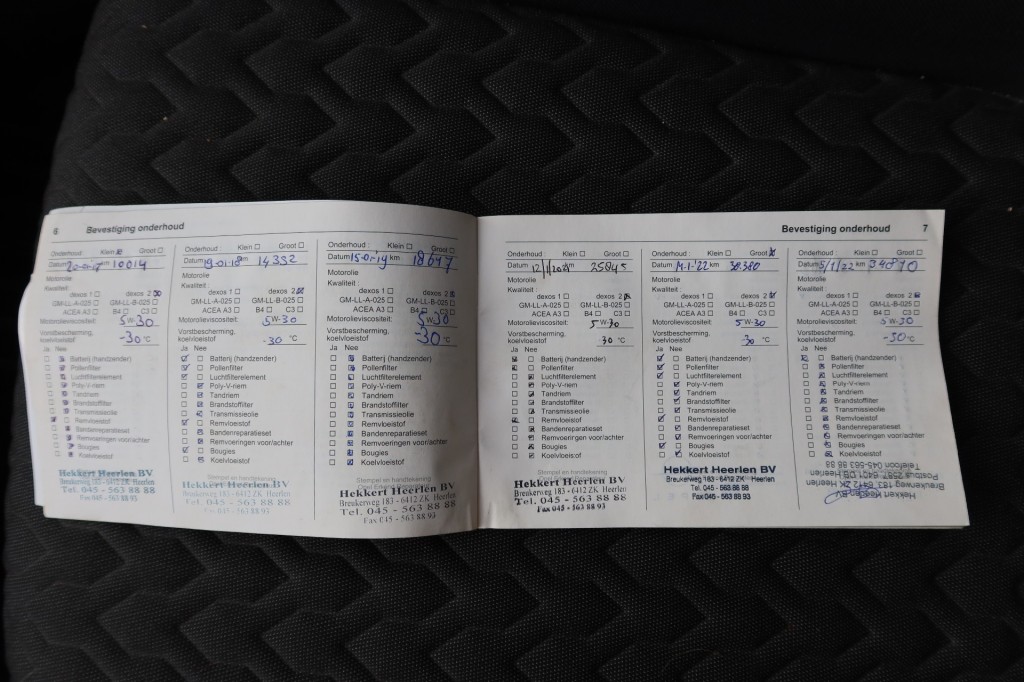 6 Bevestiging onderhoud
Onderhoud : Klein ☒ Groot ☐
Datum km 10014
Motorolie
Kwaliteit :
dexos 1 ☐ dexos 2 ☒
GM-LL-A-025 ☐ GM-LL-B-025 ☐
ACEA A3 ☐ B4 ☐ C3 ☐
Motorolieviscositeit: 5W-30
Vorstbescherming,
koelvloeistof -30 °C
Ja Nee
Batterij (handzender)
Pollenfilter
Luchtfilterelement
Poly-V-riem
Tandriem
Brandstoffilter
Transmissieolie
Remvloeistof
Bandenreparatieset
Remvoeringen voor/achter
Bougies
Koelvloeistof
Hekkert Heerlen BV
Breukerweg 183 - 6412 ZK Heerlen
Tel. 045 - 563 88 88
Fax 045 - 563 88 93
Onderhoud : Klein ☐ Groot ☐
Datum 19-01-18 km 14332
Motorolie
Kwaliteit :
dexos 1 ☐ dexos 2 ☒
GM-LL-A-025 ☐ GM-LL-B-025 ☐
ACEA A3 ☐ B4 ☐ C3 ☐
Motorolieviscositeit: 5W-30
Vorstbescherming,
koelvloeistof -30 °C
Ja Nee
Batterij (handzender)
Pollenfilter
Luchtfilterelement
Poly-V-riem
Tandriem
Brandstoffilter
Transmissieolie
Remvloeistof
Bandenreparatieset
Remvoeringen voor/achter
Bougies
Koelvloeistof
Stempel en handtekening
Hekkert Heerlen BV
Breukerweg 183 - 6412 ZK Heerlen
Tel. 045 - 563 88 88
Fax 045 - 563 88 93
Onderhoud : Klein ☐ Groot ☐
Datum 15-01-19 km 18647
Motorolie
Kwaliteit :
dexos 1 ☐ dexos 2 ☒
GM-LL-A-025 ☐ GM-LL-B-025 ☐
ACEA A3 ☐ B4 ☐ C3 ☐
Motorolieviscositeit: 5W-30
Vorstbescherming,
koelvloeistof -30 °C
Ja Nee
Batterij (handzender)
Pollenfilter
Luchtfilterelement
Poly-V-riem
Tandriem
Brandstoffilter
Transmissieolie
Remvloeistof
Bandenreparatieset
Remvoeringen voor/achter
Bougies
Koelvloeistof
Stempel en handtekening
Hekkert Heerlen BV
Breukerweg 183 - 6412 ZK Heerlen
Tel. 045 - 563 88 88
Fax 045 - 563 88 93
Bevestiging onderhoud 7
Onderhoud : Klein ☐ Groot ☐
Datum 12/1/2021 km 25845
Motorolie
Kwaliteit :
dexos 1 ☐ dexos 2 ☒
GM-LL-A-025 ☐ GM-LL-B-025 ☐
ACEA A3 ☐ B4 ☐ C3 ☐
Motorolieviscositeit: 5W-30
Vorstbescherming,
koelvloeistof -30 °C
Ja Nee
Batterij (handzender)
Pollenfilter
Luchtfilterelement
Poly-V-riem
Tandriem
Brandstoffilter
Transmissieolie
Remvloeistof
Bandenreparatieset
Remvoeringen voor/achter
Bougies
Koelvloeistof
Stempel en handtekening
Hekkert Heerlen BV
Breukerweg 183 - 6412 ZK Heerlen
Tel. 045 - 563 88 88
Fax 045 - 563 88 93
Onderhoud : Klein ☐ Groot ☒
Datum km 30.380
Motorolie
Kwaliteit :
dexos 1 ☐ dexos 2 ☒
GM-LL-A-025 ☐ GM-LL-B-025 ☐
ACEA A3 ☐ B4 ☐ C3 ☐
Motorolieviscositeit: 5W-30
Vorstbescherming,
koelvloeistof -30 °C
Ja Nee
Batterij (handzender)
Pollenfilter
Luchtfilterelement
Poly-V-riem
Tandriem
Brandstoffilter
Transmissieolie
Remvloeistof
Bandenreparatieset
Remvoeringen voor/achter
Bougies
Koelvloeistof
Hekkert Heerlen BV
Breukerweg 183 - 6412 ZK Heerlen
Tel. 045 - 563 88 88
Fax 045 - 563 88 93
Onderhoud : Klein ☐ Groot ☐
Datum km
Motorolie
Kwaliteit :
dexos 1 ☐ dexos 2 ☒
GM-LL-A-025 ☐ GM-LL-B-025 ☐
ACEA A3 ☐ B4 ☐ C3 ☐
Motorolieviscositeit: 5W-30
Vorstbescherming,
koelvloeistof -30 °C
Ja Nee
Batterij (handzender)
Pollenfilter
Luchtfilterelement
Poly-V-riem
Tandriem
Brandstoffilter
Transmissieolie
Remvloeistof
Bandenreparatieset
Remvoeringen voor/achter
Bougies
Koelvloeistof
Hekkert Heerlen BV
Breukerweg 183 6412 ZK Heerlen
Telefoon 045-563 88 88